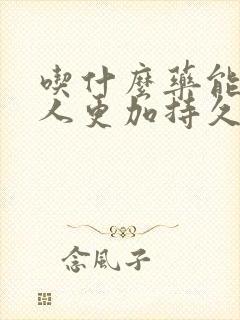 喫什麼藥能
人更加持久
念風子